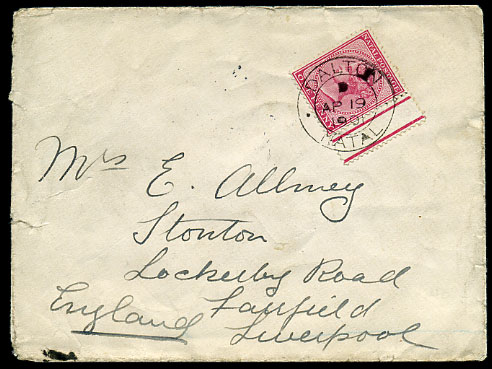 NATAL POSTAGE
DALTON
AP 19
NATAL
Mrs E. Allmey
Stonton
Lockerby Road
Fairfield
Liverpool
England